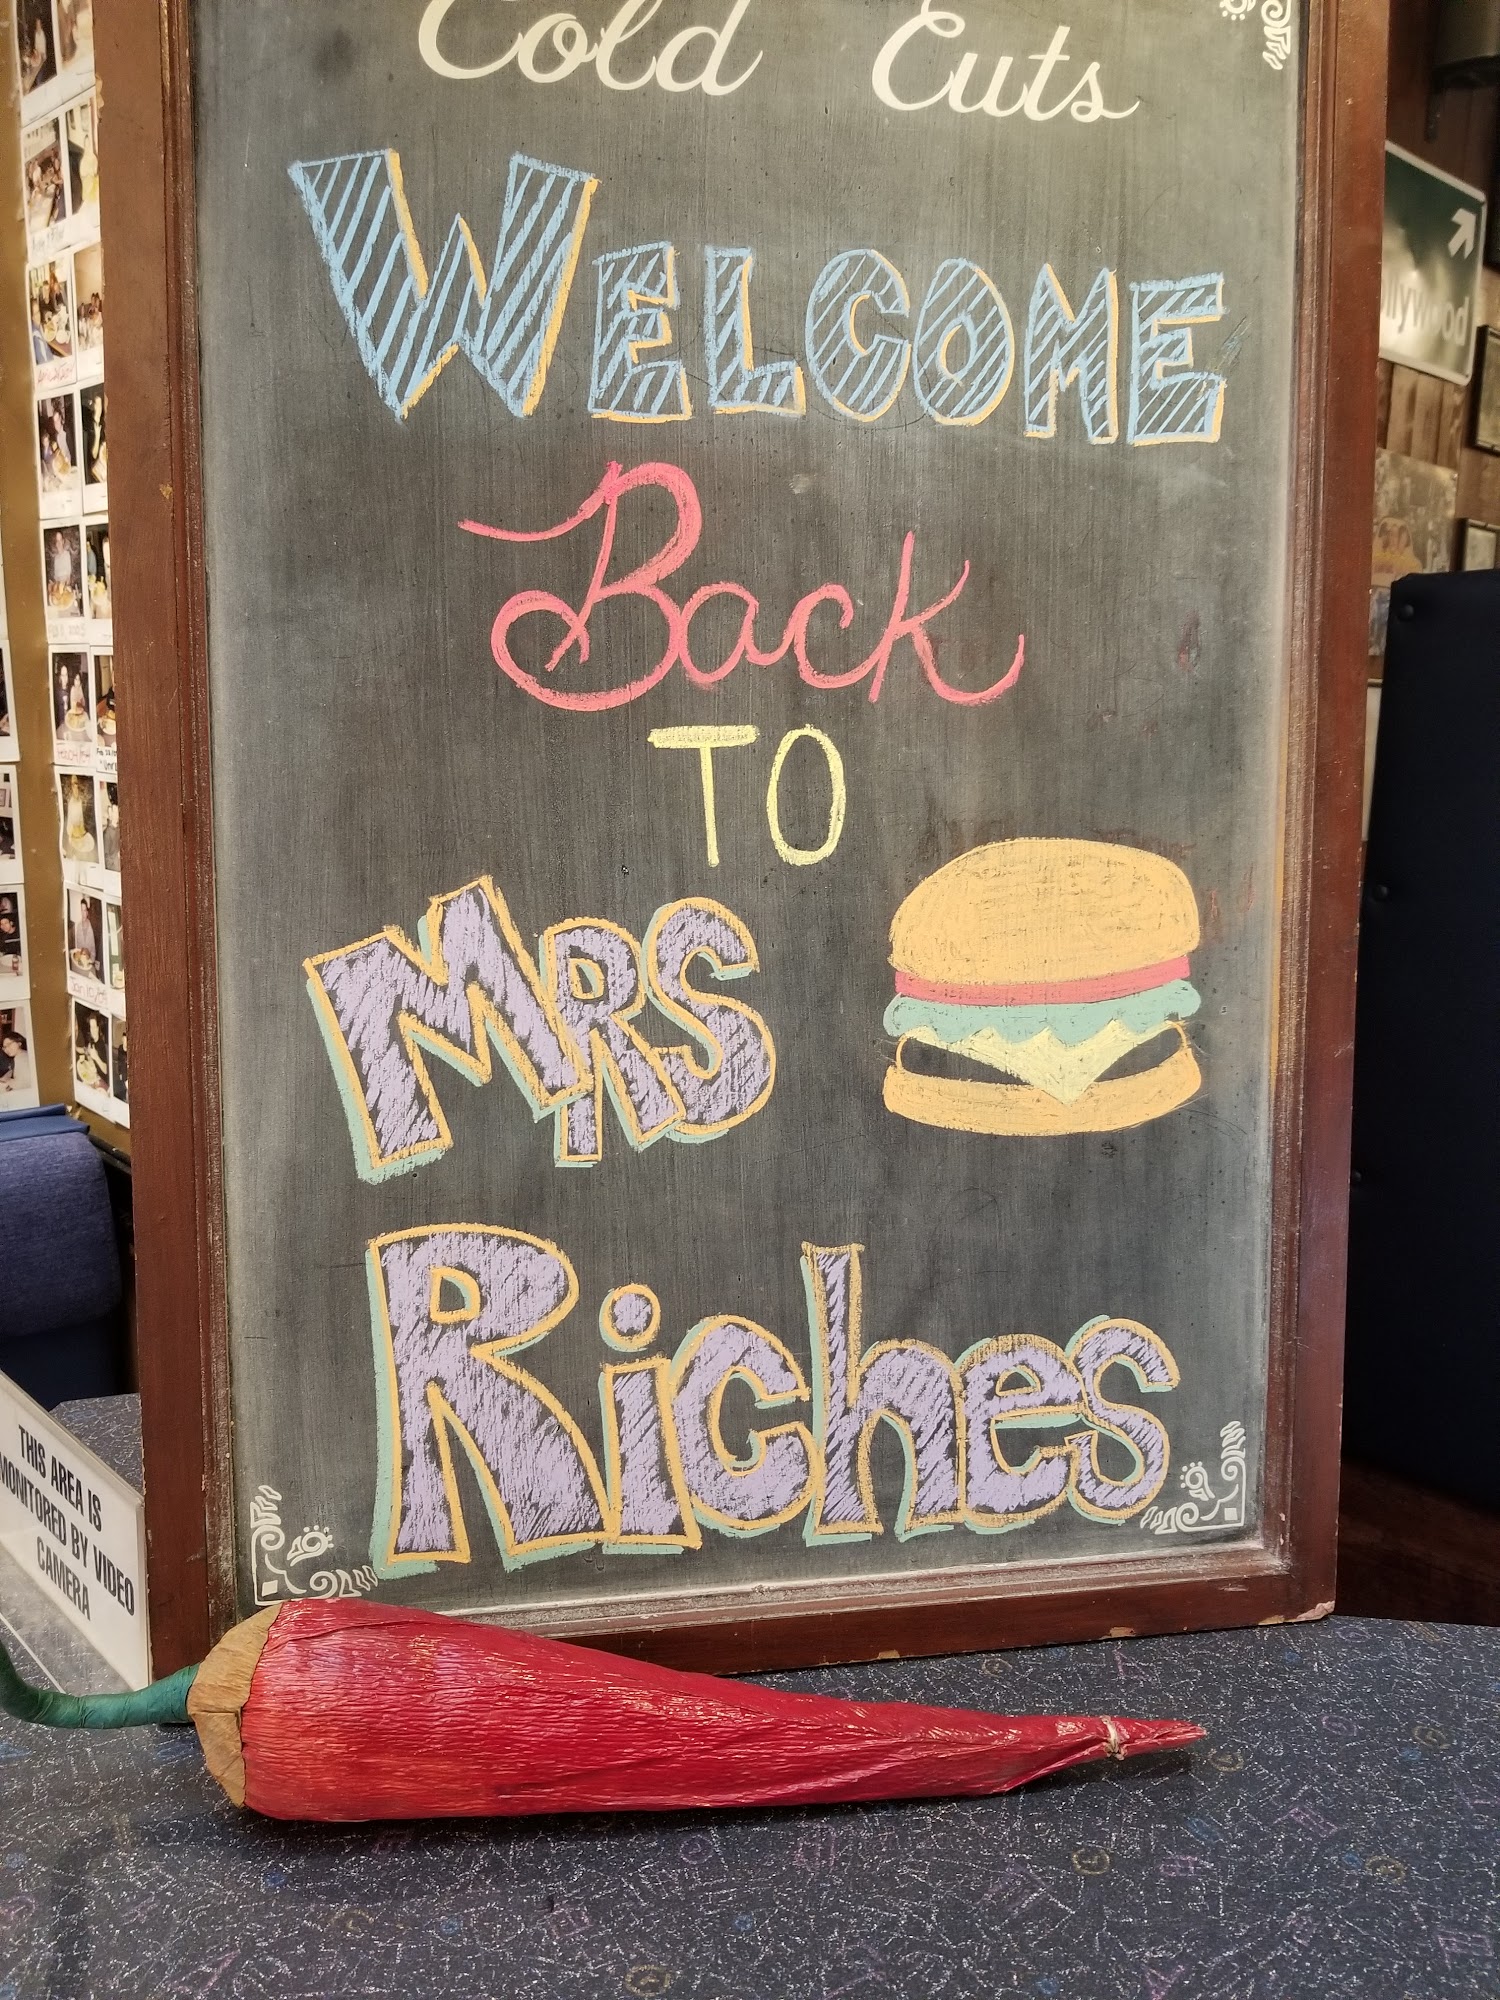 Cold Cuts
WELCOME
Back
TO
MRS
Riches
THIS AREA IS
MONITORED BY VIDEO
CAMERA